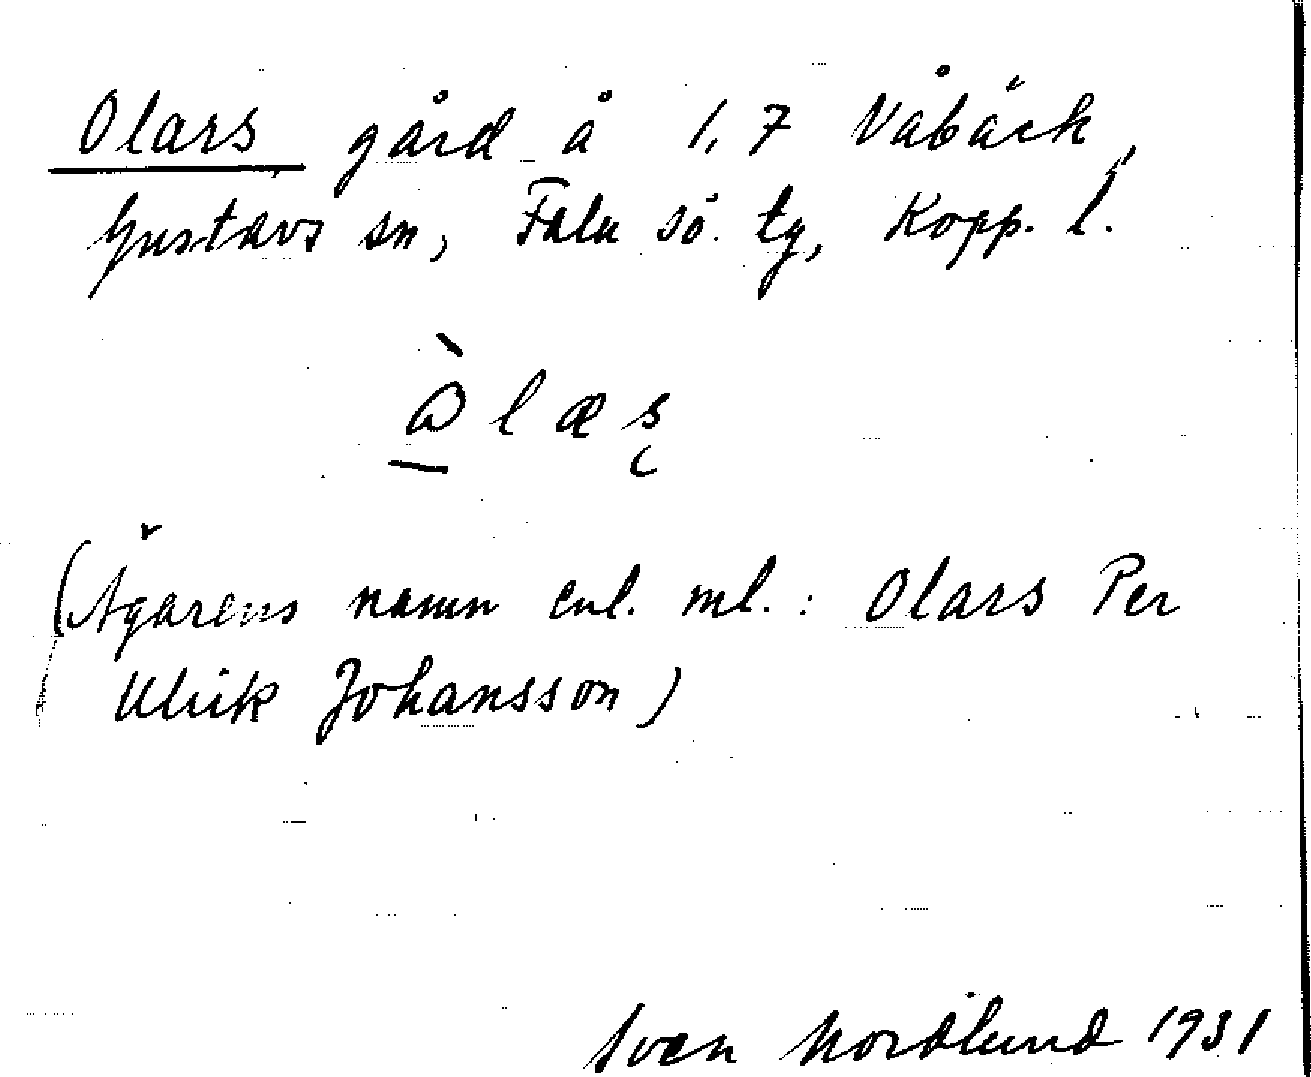 Olars gård å 1,7 Våbäck,
Gustavs sn, Falu sö. tg, Kopp. l.
(Ägarens namn enl. ml.: Olars Per
Ulrik Johansson)
Sven Nordlund 1931